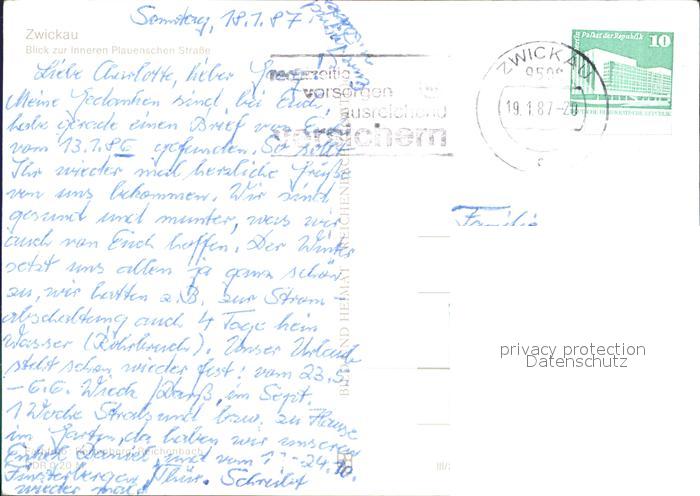 Sonntag, 18.1.87.
Zwickau
Blick zur Inneren Plauenschen Straße
Liebe Charlotte, lieber
Meine Gedanken sind bei Euch,
habe gerade einen Brief von
vom 13.1.86 gefunden. So sollt
Ihr wieder mal herzliche Grüße
von uns bekommen. Wir sind
gesund und munter, was wir
auch von Euch hoffen. Der Winter
setzt uns allen ja ganz schön
zu, wir hatten z.B. zur Strom-
abschaltung auch 4 Tage kein
Wasser (Rohrbruch). Unser Urlaub
steht schon wieder fest: vom 23.5.
-6.6. Wieck/Darß, im Sept.
1 Woche Stralsund bzw. zu Hause
im Garten, da haben wir unseren
Enkel Daniel, und vom
Finsterbergen/Thür. Schreibt
wieder mal
rechtzeitig
vorsorgen
ausreichend
versichern
ZWICKAU
9500
19.1.87-20
c
Palast der Republik
10
DEUTSCHE DEMOKRATISCHE REPUBLIK
BILD UND HEIMAT REICHENBACH
Reichenbach
DDR 0,20 M
Familie
privacy protection
Datenschutz